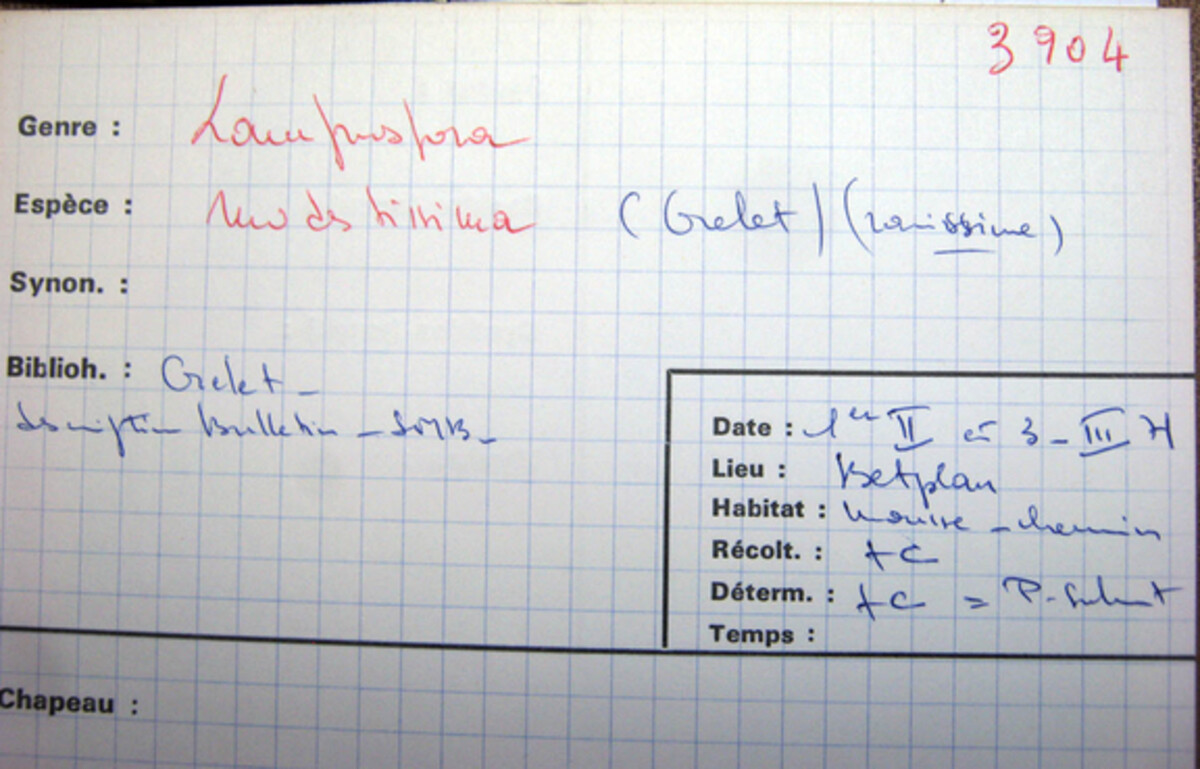 3904
Genre : Lamprospora
Espèce : modestissima (Grelet) (rarissime)
Synon. :
Biblioh. : Grelet -
description Bulletin - SMB -
Date : 1er II et 3 - III
Lieu : Betplan
Habitat : mousse - chemin
Récolt. : AC
Déterm. : AC =
Temps :
Chapeau :